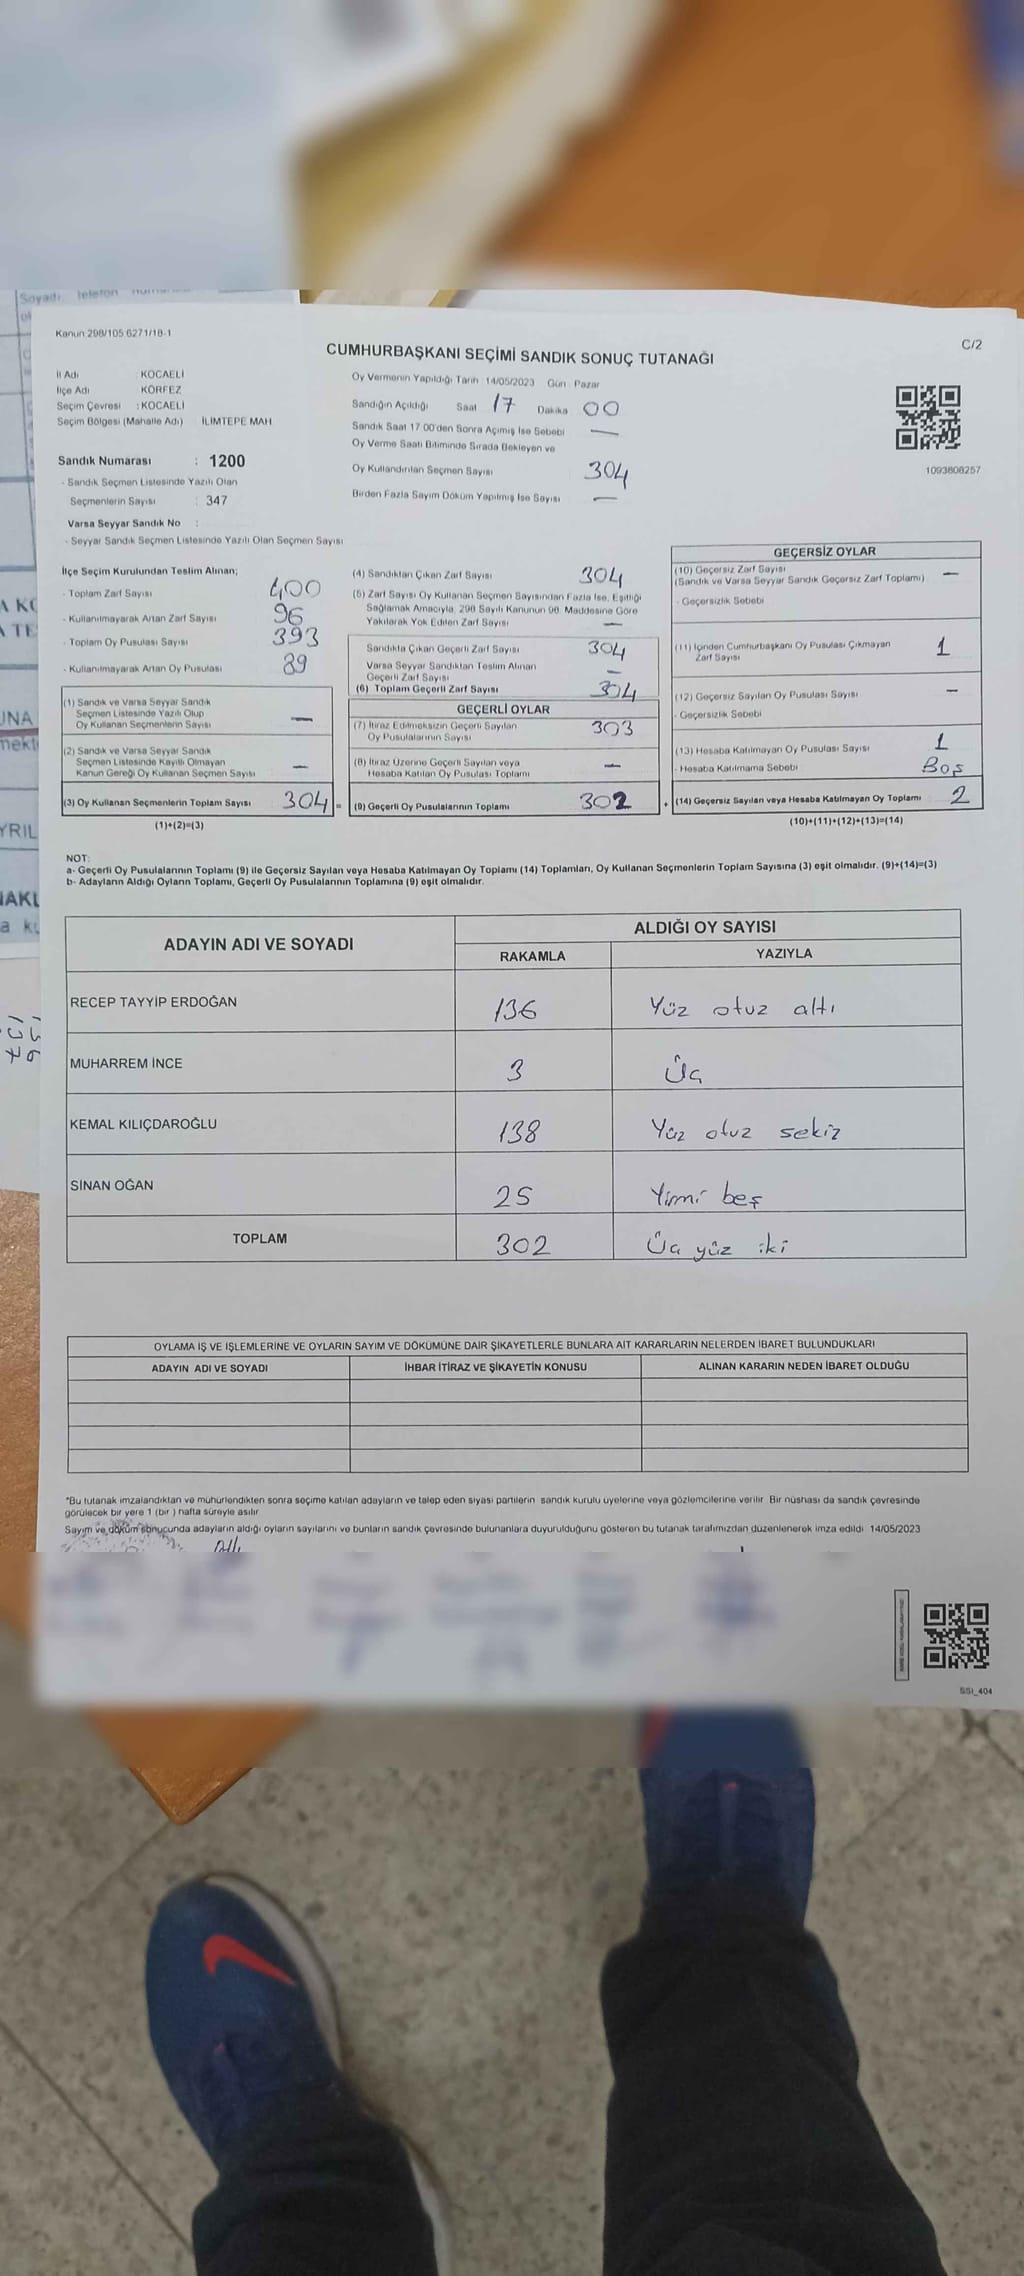 Soyadı, telefon
Kanun 298/105 6271/18-1
C/2
CUMHURBAŞKANI SEÇİMİ SANDIK SONUÇ TUTANAĞI
İl Adı : KOCAELİ
İlçe Adı : KÖRFEZ
Seçim Çevresi : KOCAELİ
Seçim Bölgesi (Mahalle Adı) İLİMTEPE MAH
Sandık Numarası : 1200
- Sandık Seçmen Listesinde Yazılı Olan
Seçmenlerin Sayısı : 347
Varsa Seyyar Sandık No :
- Seyyar Sandık Seçmen Listesinde Yazılı Olan Seçmen Sayısı
Oy Vermenin Yapıldığı Tarih : 14/05/2023 Gün : Pazar
Sandığın Açıldığı Saat 17 Dakika 00
Sandık Saat 17.00'den Sonra Açımış İse Sebebi —
Oy Verme Saati Bitiminde Sırada Bekleyen ve
Oy Kullandırılan Seçmen Sayısı 304
Birden Fazla Sayım Döküm Yapılmış İse Sayısı —
1093808257
İlçe Seçim Kurulundan Teslim Alınan;
- Toplam Zarf Sayısı 400
- Kullanılmayarak Artan Zarf Sayısı 96
- Toplam Oy Pusulası Sayısı 393
- Kullanılmayarak Artan Oy Pusulası 89
(1) Sandık ve Varsa Seyyar Sandık
Seçmen Listesinde Yazılı Olup
Oy Kullanan Seçmenlerin Sayısı —
(2) Sandık ve Varsa Seyyar Sandık
Seçmen Listesinde Kayıtlı Olmayan
Kanun Gereği Oy Kullanan Seçmen Sayısı —
(3) Oy Kullanan Seçmenlerin Toplam Sayısı 304 =
(1)+(2)=(3)
(4) Sandıktan Çıkan Zarf Sayısı 304
(5) Zarf Sayısı Oy Kullanan Seçmen Sayısından Fazla İse, Eşitliği
Sağlamak Amacıyla, 298 Sayılı Kanunun 98. Maddesine Göre
Yakılarak Yok Edilen Zarf Sayısı —
Sandıkta Çıkan Geçerli Zarf Sayısı 304
Varsa Seyyar Sandıktan Teslim Alınan
Geçerli Zarf Sayısı —
(6) Toplam Geçerli Zarf Sayısı 304
GEÇERLİ OYLAR
(7) İtiraz Edilmeksizin Geçerli Sayılan
Oy Pusulalarının Sayısı 303
(8) İtiraz Üzerine Geçerli Sayılan veya
Hesaba Katılan Oy Pusulası Toplamı —
(9) Geçerli Oy Pusulalarının Toplamı 302 +
GEÇERSİZ OYLAR
(10) Geçersiz Zarf Sayısı
(Sandık ve Varsa Seyyar Sandık Geçersiz Zarf Toplamı) —
- Geçersizlik Sebebi
(11) İçinden Cumhurbaşkanı Oy Pusulası Çıkmayan
Zarf Sayısı 1
(12) Geçersiz Sayılan Oy Pusulası Sayısı —
- Geçersizlik Sebebi
(13) Hesaba Katılmayan Oy Pusulası Sayısı 1
- Hesaba Katılmama Sebebi Boş
(14) Geçersiz Sayılan veya Hesaba Katılmayan Oy Toplamı 2
(10)+(11)+(12)+(13)=(14)
NOT:
a- Geçerli Oy Pusulalarının Toplamı (9) ile Geçersiz Sayılan veya Hesaba Katılmayan Oy Toplamı (14) Toplamları, Oy Kullanan Seçmenlerin Toplam Sayısına (3) eşit olmalıdır. (9)+(14)=(3)
b- Adayların Aldığı Oyların Toplamı, Geçerli Oy Pusulalarının Toplamına (9) eşit olmalıdır.
ADAYIN ADI VE SOYADI ALDIĞI OY SAYISI
RAKAMLA YAZIYLA
RECEP TAYYİP ERDOĞAN 136 Yüz otuz altı
MUHARREM İNCE 3 Üç
KEMAL KILIÇDAROĞLU 138 Yüz otuz sekiz
SİNAN OĞAN 25 Yirmi beş
TOPLAM 302 Üç yüz iki
OYLAMA İŞ VE İŞLEMLERİNE VE OYLARIN SAYIM VE DÖKÜMÜNE DAİR ŞİKAYETLERLE BUNLARA AİT KARARLARIN NELERDEN İBARET BULUNDUKLARI
ADAYIN ADI VE SOYADI İHBAR İTİRAZ VE ŞİKAYETİN KONUSU ALINAN KARARIN NEDEN İBARET OLDUĞU
*Bu tutanak imzalandıktan ve mühürlendikten sonra seçime katılan adayların ve talep eden siyasi partilerin sandık kurulu üyelerine veya gözlemcilerine verilir. Bir nüshası da sandık çevresinde
görülecek bir yere 1 (bir ) hafta süreyle asılır
Sayım ve döküm sonucunda adayların aldığı oyların sayılarını ve bunların sandık çevresinde bulunanlara duyurulduğunu gösteren bu tutanak tarafımızdan düzenlenerek imza edildi 14/05/2023
SSI_404